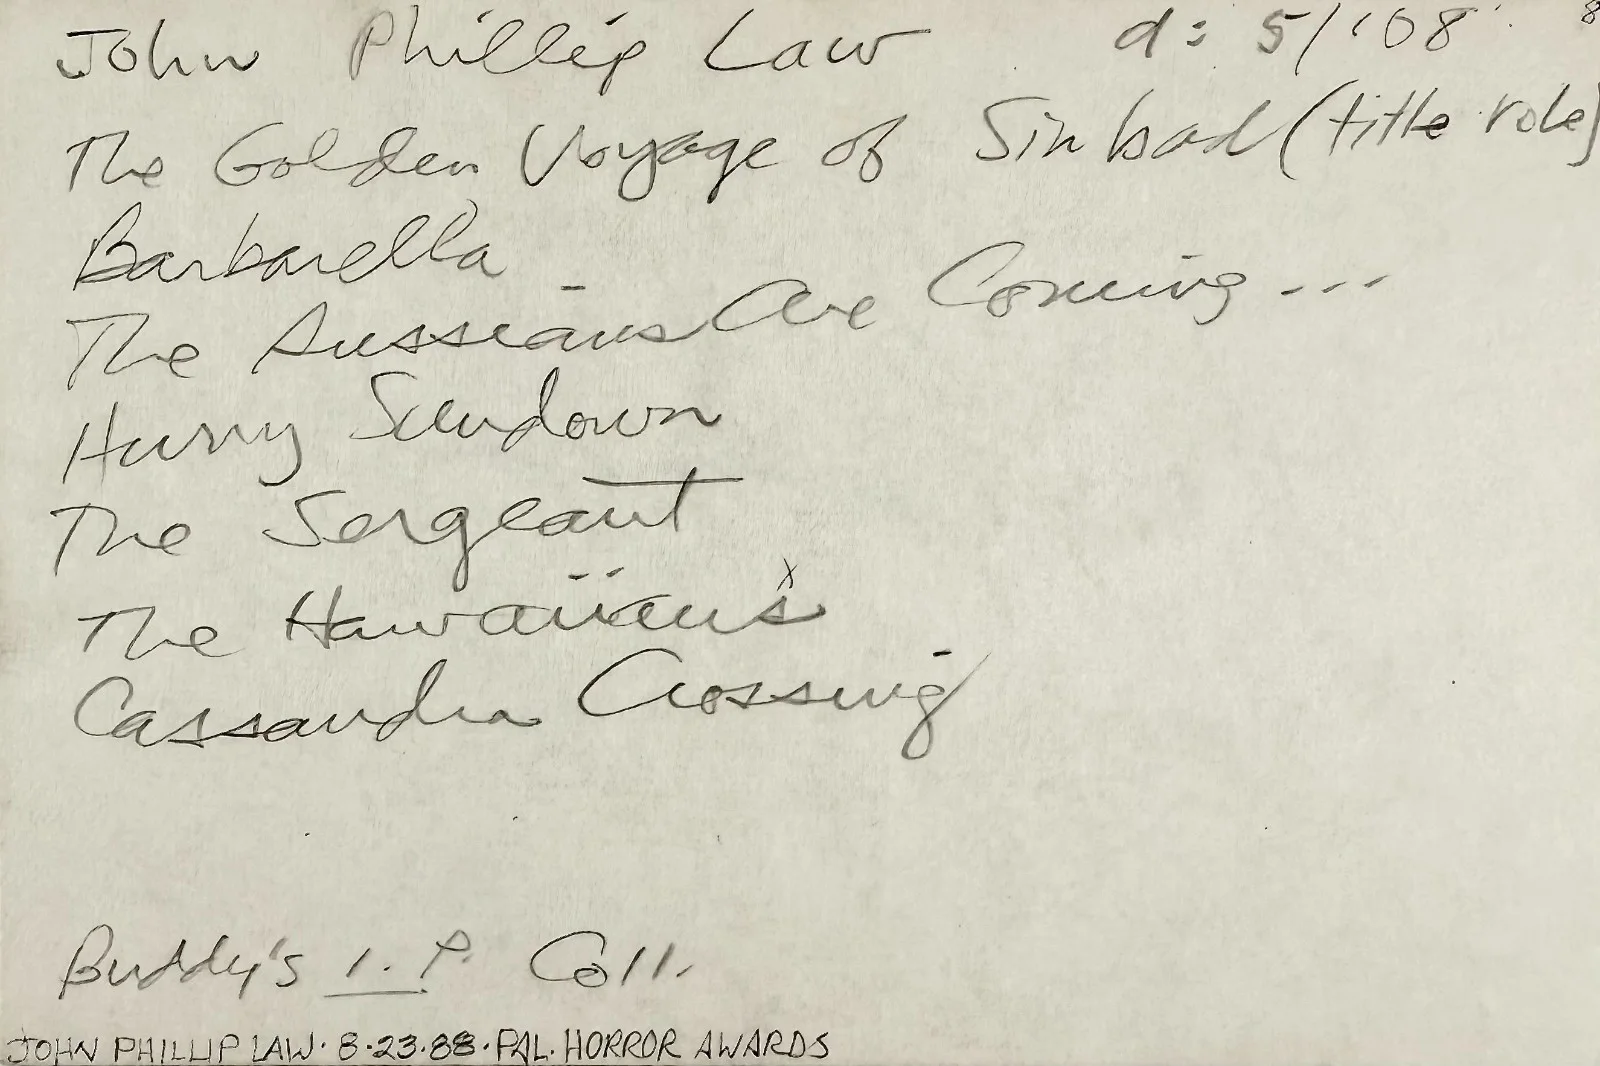 John Phillip Law d: 5/'08
The Golden Voyage of Sinbad (title role)
Barbarella
The Russians Are Coming...
Hurry Sundown
The Sergeant
The Hawaiians
Cassandra Crossing
Buddy's I.P. Coll.
JOHN PHILLIP LAW · 8·23·88 · PAL. HORROR AWARDS